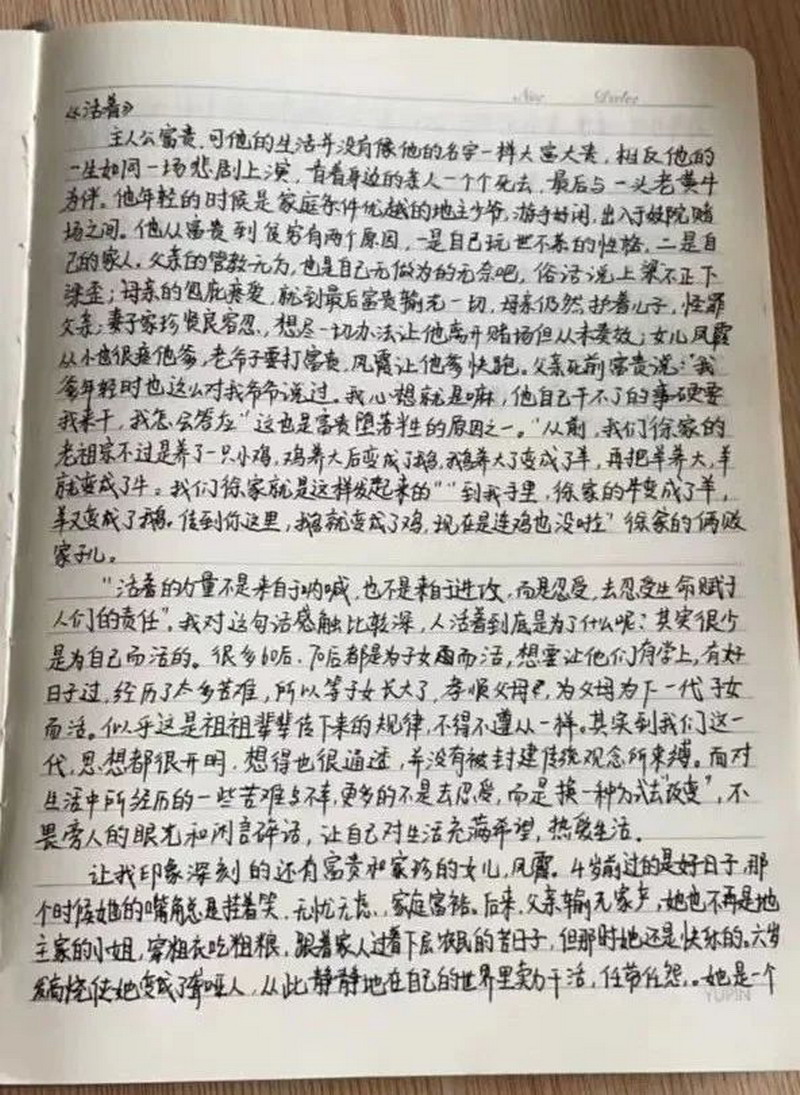 《活着》
主人公富贵,可他的生活并没有像他的名字一样大富大贵,相反他的
一生如同一场悲剧上演,看着身边的亲人一个个死去,最后与一头老黄牛
为伴。他年轻的时候是家庭条件优越的地主少爷,游手好闲,出入于妓院赌
场之间。他从富贵到贫穷有两个原因,一是自己玩世不恭的性格,二是自
己的家人。父亲的管教无为,也是自己无做为的无奈吧,俗话说上梁不正下
梁歪;母亲的包庇疼爱,就到最后富贵输光一切,母亲仍然护着儿子,怪罪
父亲;妻子家珍贤良容忍,想尽一切办法让他离开赌场但从未奏效;女儿凤霞
从小也很疼他爹,老爷子要打富贵,凤霞让他爹快跑。父亲死前富贵说:"我
爹年轻时也这么对我爷爷说过。我心想就是嘛,他自己干不了的事硬要
我来干,我怎会答应"这也是富贵堕落半生的原因之一。"从前,我们徐家的
老祖宗不过是养了一只小鸡,鸡养大后变成了鹅,鹅养大了变成了羊,再把羊养大,羊
就变成了牛。我们徐家就是这样发起来的""到我手里,徐家的牛变成了羊,
羊又变成了鹅。传到你这里,鹅就变成了鸡,现在是连鸡也没啦"徐家的俩败
家子儿。
"活着的力量不是来自于呐喊,也不是来自于进攻,而是忍受,去忍受生命赋于
人们的责任"。我对这句话感触比较深,人活着到底是为了什么呢?其实很少
是为自己而活的。很多60后、70后都是为子女而活,想要让他们有学上,有好
日子过,经历了太多苦难,所以等子女长大了,孝顺父母,为父母为下一代子女
而活。似乎这是祖祖辈辈传下来的规律,不得不遵从一样。其实到我们这一
代,思想都很开明,想得也很通透,并没有被封建传统观念所束缚。面对
生活中所经历的一些苦难与不幸,更多的不是去忍受,而是换一种方式去"改变",不
畏旁人的眼光和闲言碎语,让自己对生活充满希望,热爱生活.
让我印象深刻的还有富贵和家珍的女儿,凤霞。4岁前过的是好日子,那
个时候她的嘴角总是挂着笑,无忧无虑,家庭富裕。后来,父亲输光家产,她也不再是地
主家的小姐,穿粗衣吃粗粮,跟着家人过着下层农民的苦日子,但那时她还是快乐的。六岁
发高烧使她变成了聋哑人,从此静静地在自己的世界里卖力干活,任劳任怨。她是一个
YUPIN